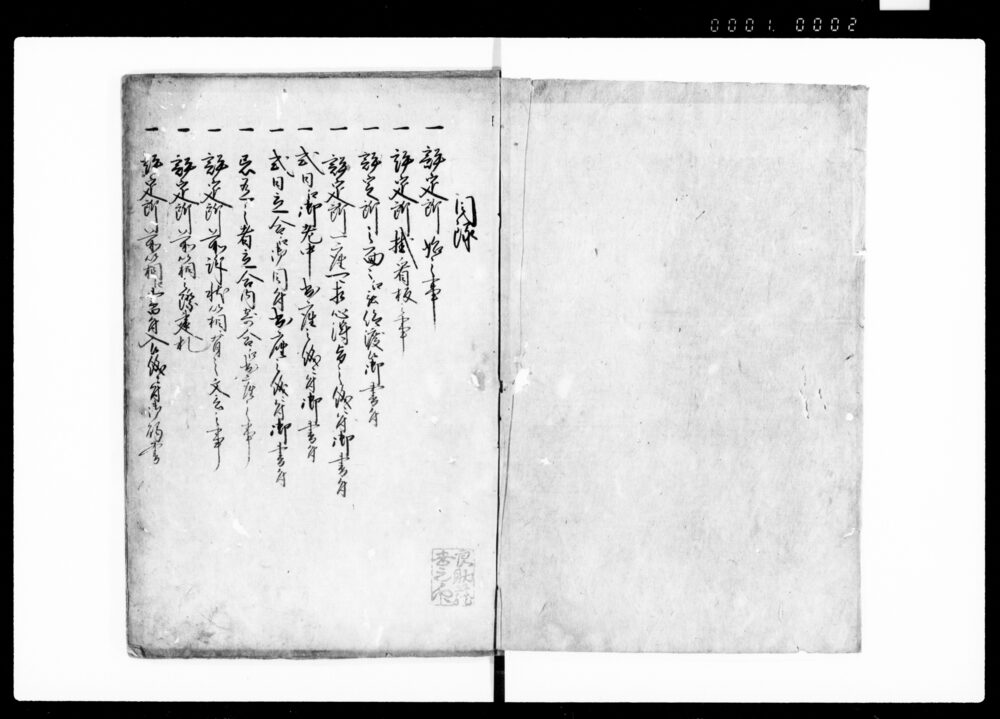 0001. 0002
目録
一 評定所始之事
一 評定所掛看板之事
一 評定所之面々江被仰渡御書付
一 評定所一座可相心得旨之儀ニ付御書付
一 式日御老中出座之儀ニ付御書付
一 式日立合御目付出座之儀ニ付御書付
一 忌有之者立合内寄合江出座之事
一 評定所前訴状箱有之文言之事
一 評定所前箱之際建札
一 評定所前箱